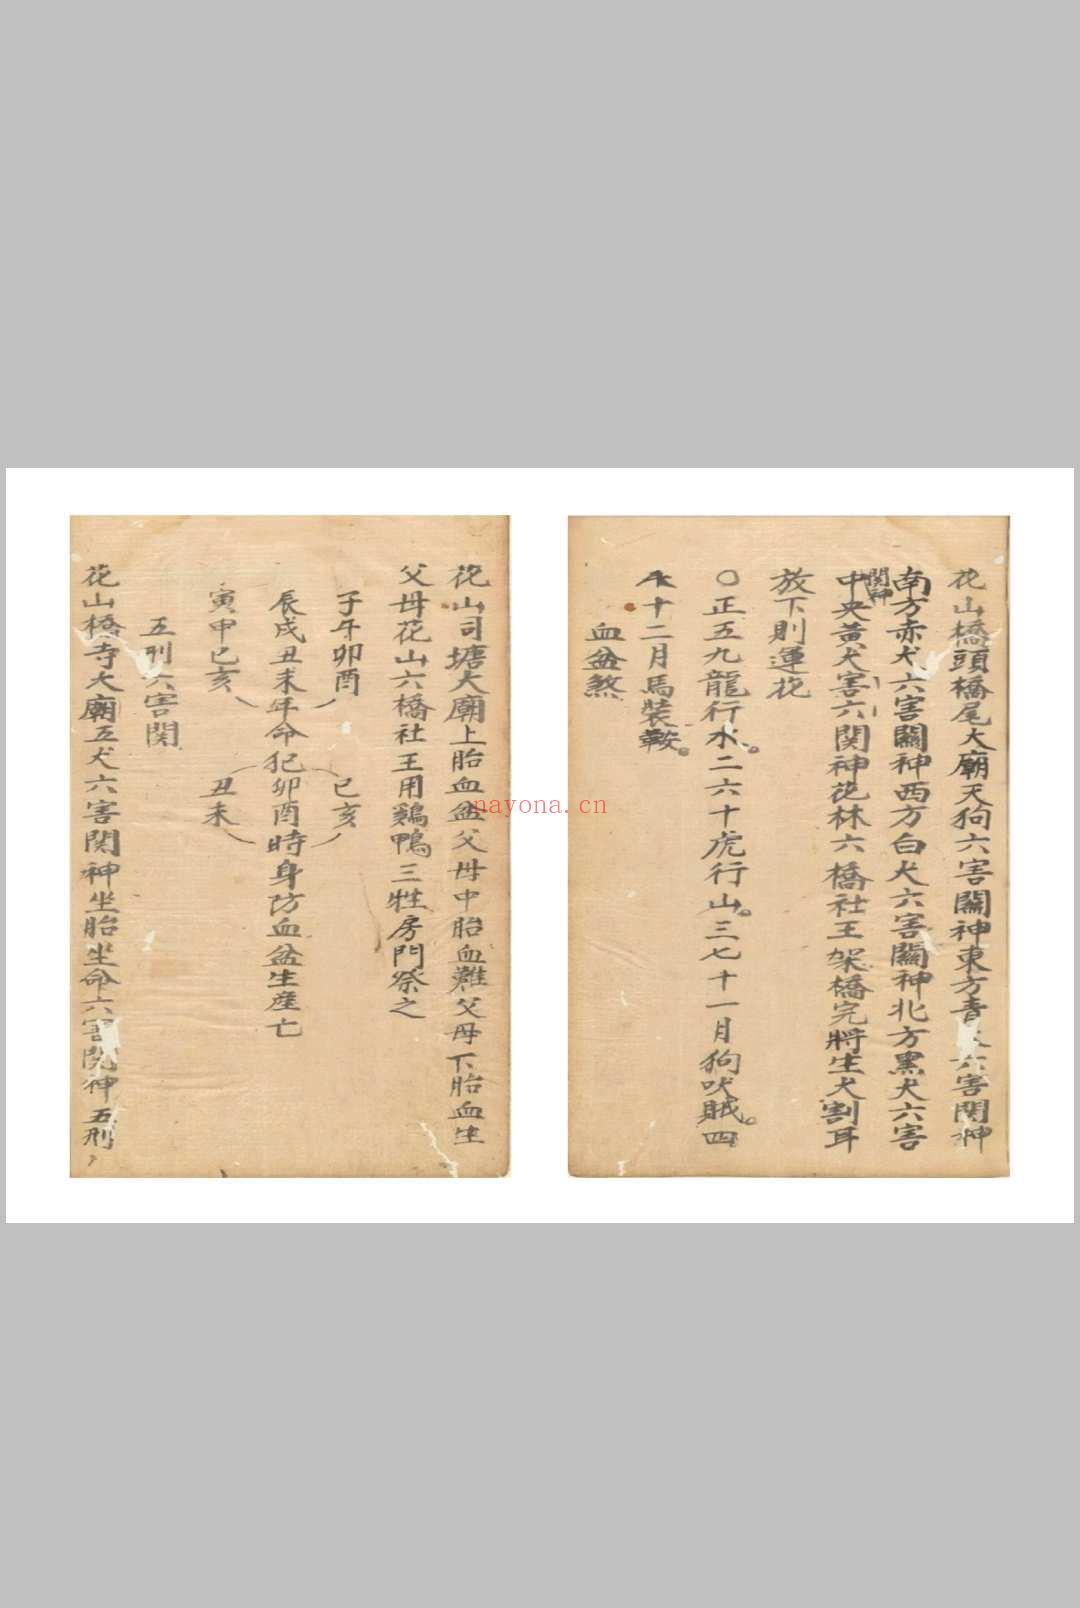 花山橋頭橋尾大廟天狗六害關神東方青六害関神
南方赤犬六害關神西方白犬六害關神北方黑犬六害
関神
中央黃犬害六関神花林六橋社王架橋完將生犬割耳
放下則運花
〇正五九龍行水。二六十虎行山。三七十一月狗吠賊。四
十二月馬裝鞍。
血盆煞
花山司塘大廟上胎血盆父母中胎血難父母下胎血生
父母花山六橋社王用鷄鴨三牲房門祭之
子午卯酉 已亥
辰戌丑未年命犯卯酉時身防血盆生産亡
寅申巳亥 丑未
五刑六害関
花山橋寺大廟五犬六害関神坐胎坐命六害関神五刑
nayona.cn